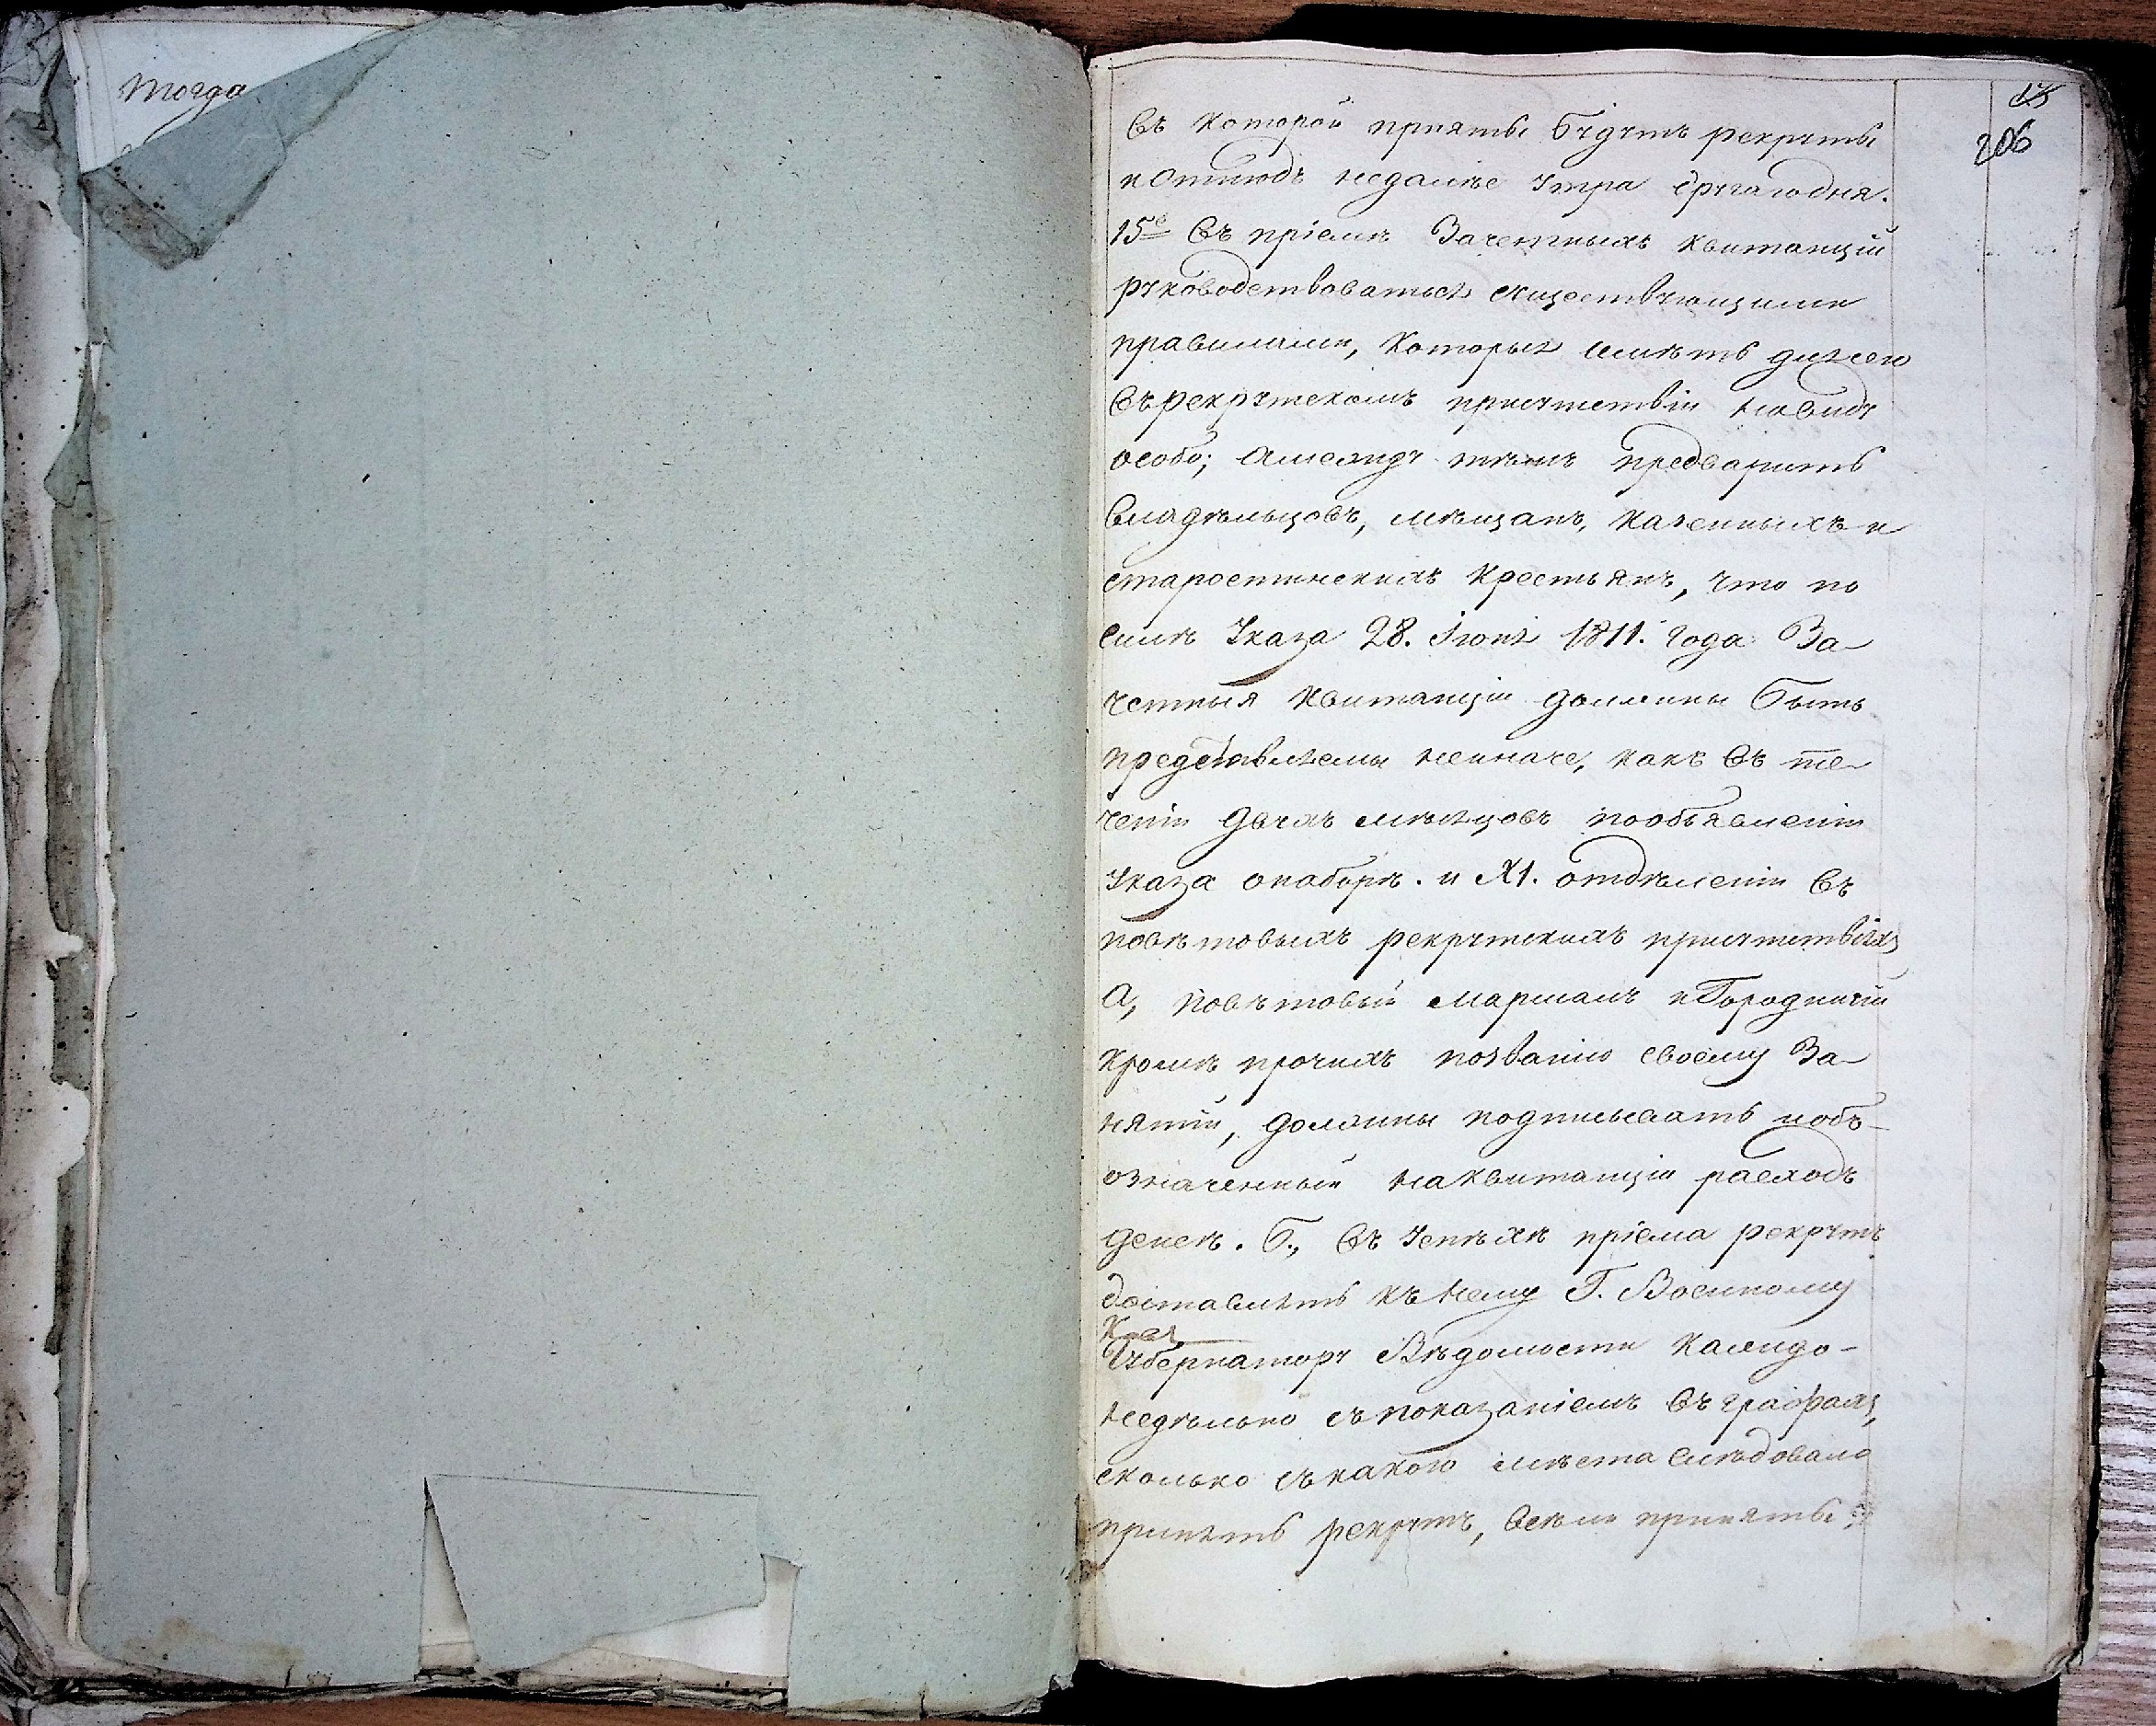 Тогда
13
206
въ которой приняты будутъ рекруты
и отнюдъ недалѣе утра другаго дня.
15е Въ пріемѣ Зачетныхъ квитанцій
руководствоваться существующими
правилами, которыя имѣть для сего
въ рекрутскомъ присутствіи на виду
особо; а между тѣмъ предварить
владѣльцовъ, мѣщанъ, казенныхъ и
старостинскихъ крестьянъ, что по
силѣ Указа 28. Іюня 1811. года За-
четныя квитанціи должны быть
представляемы неиначе, какъ въ те-
ченіи двухъ мѣсяцовъ по объявленіи
Указа о наборѣ. и XI. отдѣленіи въ
повѣтовыхъ рекрутскихъ присутствіяхъ
А, повѣтовый маршалъ и Городничій
кромѣ прочихъ по званію своему За-
нятій, должны подписывать и объ-
означенный на квитанціи расходъ
денегъ. Б., въ успѣхѣ пріема рекрутъ
доставлять къ нему Г. Военному
Губернатору Вѣдомости каждо-
недѣльно съ показаніемъ въ графахъ,
сколько съ какого мѣста слѣдовало
принять рекрутъ, всѣ ли приняты,